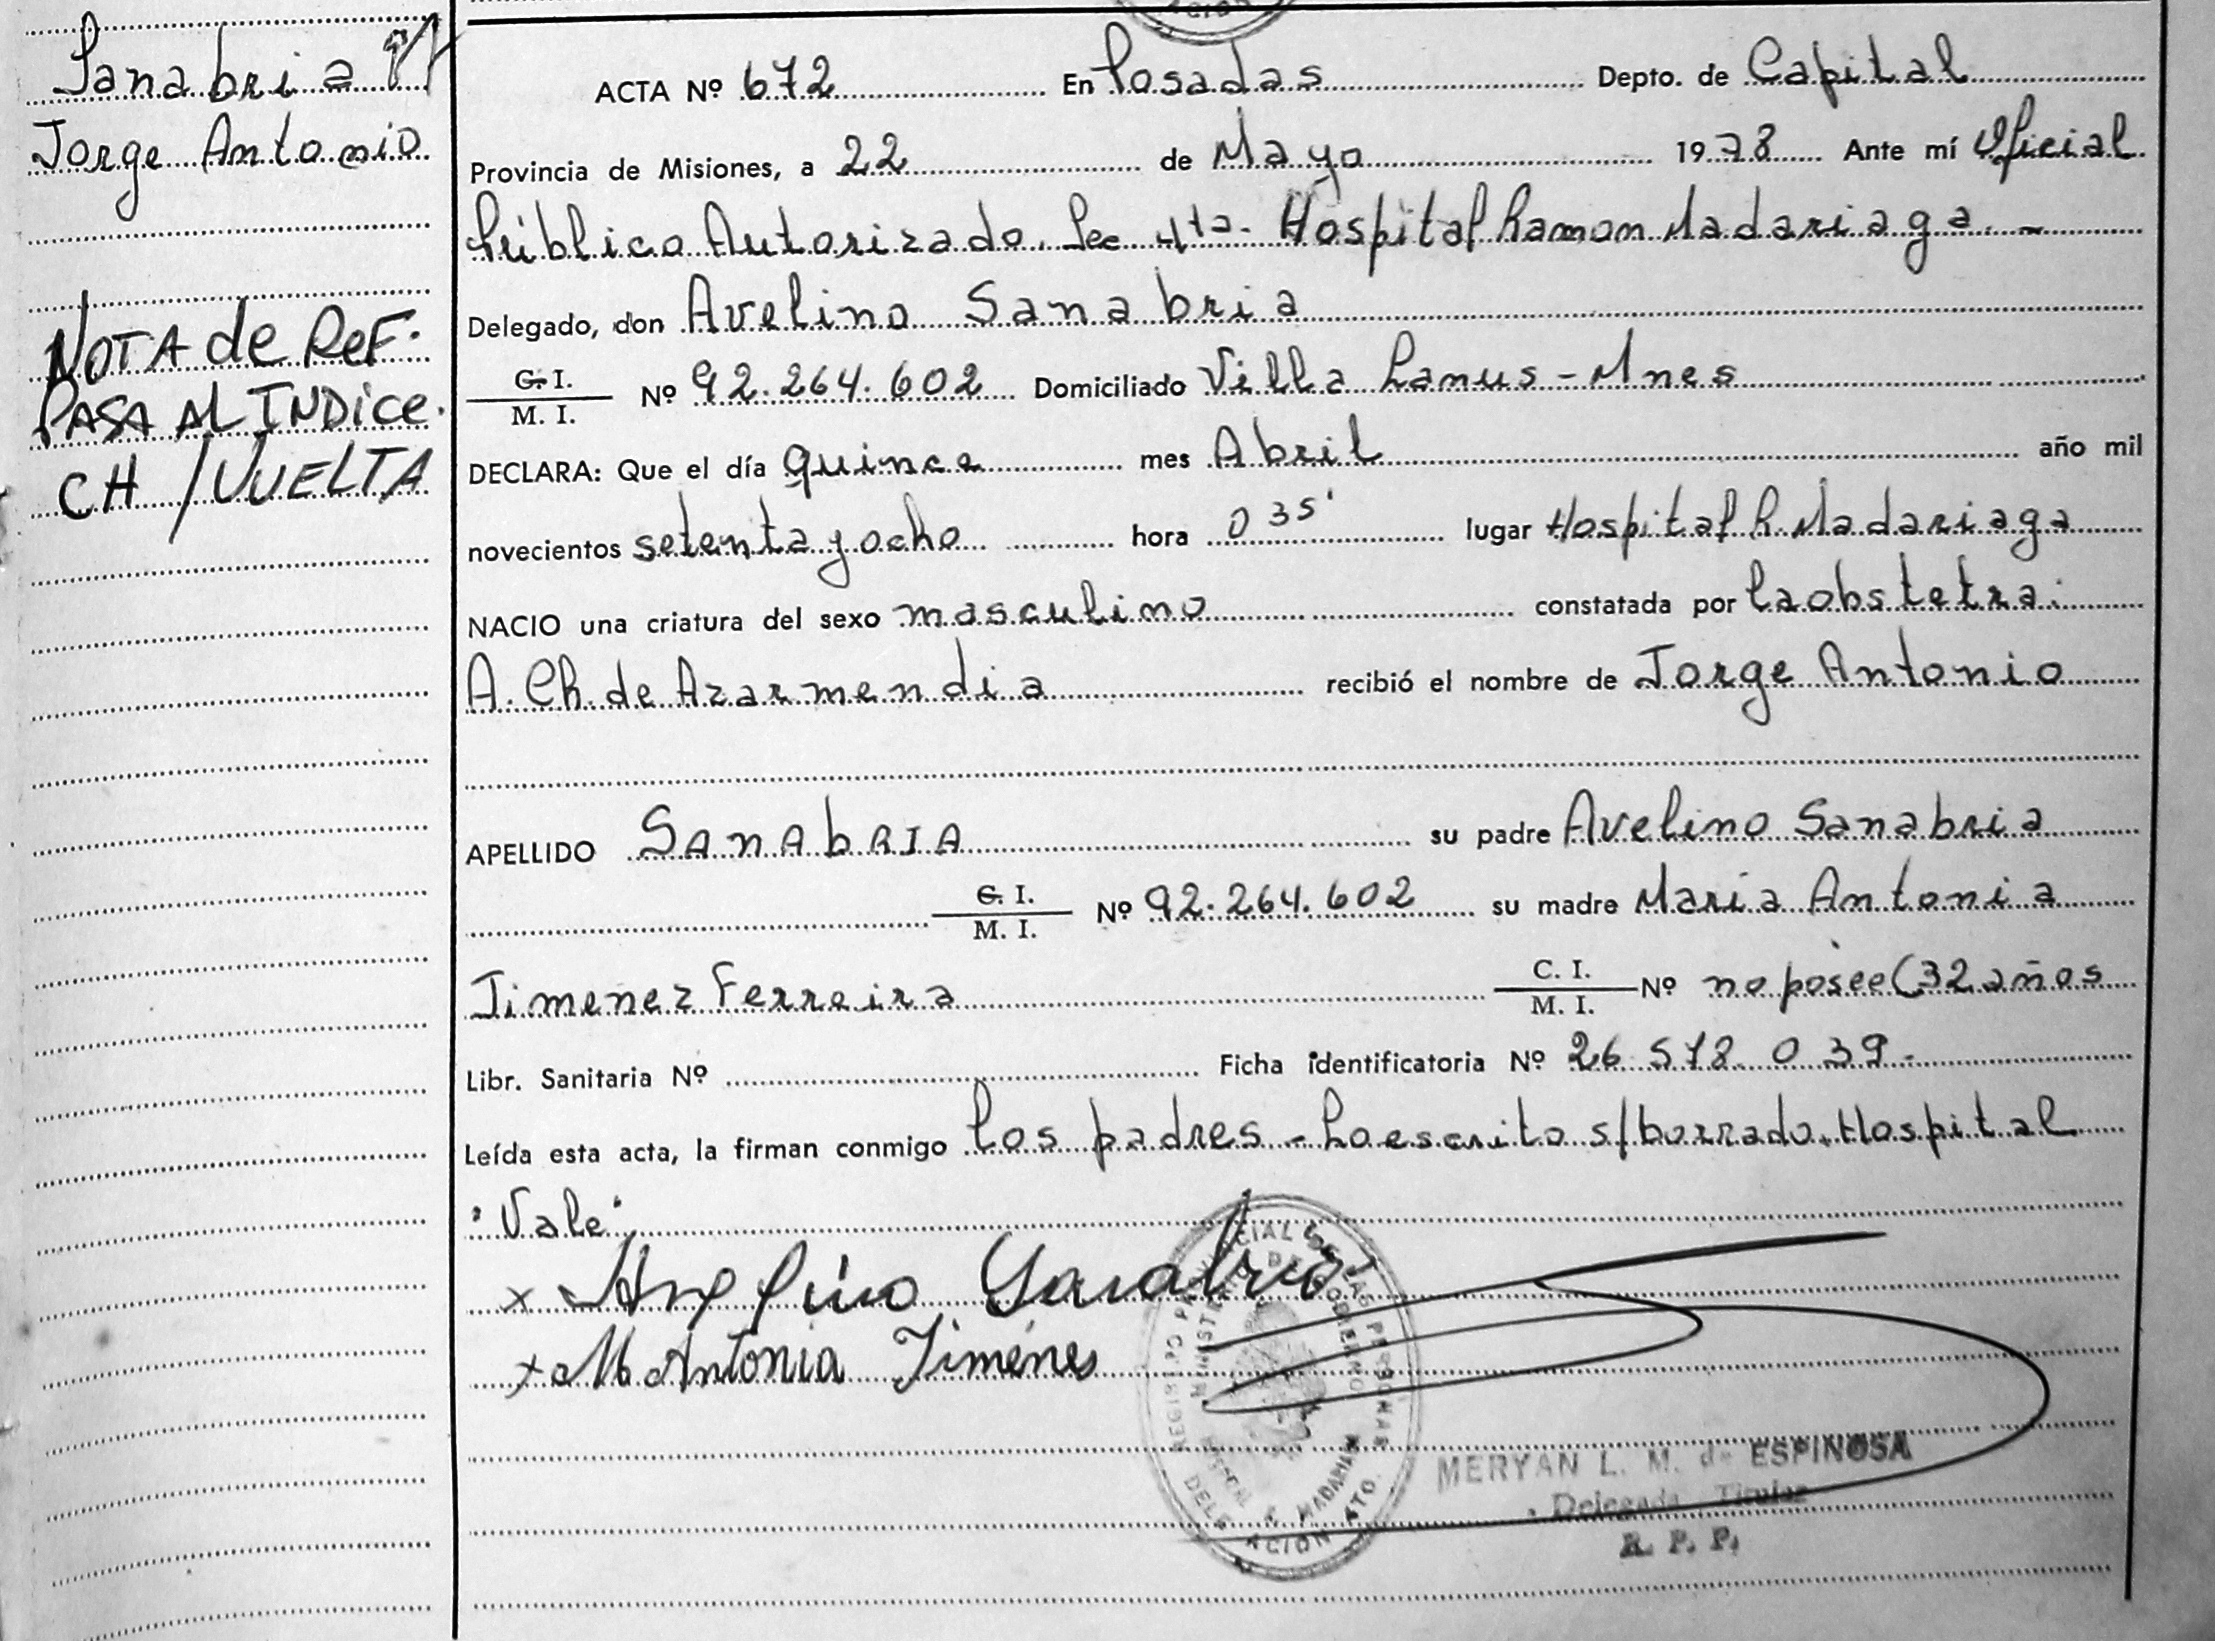 ACION
Sanabria
Jorge Antonio
NOTA de ReF.
PASA AL INDice.
CH / VUELTA
ACTA Nº 672 En Posadas Depto. de Capital
Provincia de Misiones, a 22 de Mayo 1978 Ante mí Oficial
Público Autorizado. Sec 4ta. Hospital Ramon Madariaga. -
Delegado, don Avelino Sanabria
C. I.
M. I.
Nº 92.264.602 Domiciliado Villa Lanus - Mnes
DECLARA: Que el día quince mes Abril año mil
novecientos setenta y ocho hora 0 35' lugar Hospital R. Madariaga
NACIO una criatura del sexo masculino constatada por la obstetra:
A. Ch. de Azarmendia recibió el nombre de Jorge Antonio
APELLIDO SANAbRIA su padre Avelino Sanabria
C. I.
M. I.
Nº 92.264.602 su madre Maria Antonia
Jimenez Ferreira
C. I.
M. I.
Nº no posee (32 años
Libr. Sanitaria Nº Ficha identificatoria Nº 26.578.039.-
Leída esta acta, la firman conmigo los padres - Lo escrito s/borrado. Hospital
"Vale"
x Avelino Sanabria
x M Antonia Jimenes
REGISTRO PROVINCIAL DE LAS PERSONAS
MINISTERIO DE GOBIERNO
HOSPITAL R. MADARIAGA
DELEGACION 4TO.
MERYAN L. M. de ESPINOSA
Delegada Titular
R. P. P.